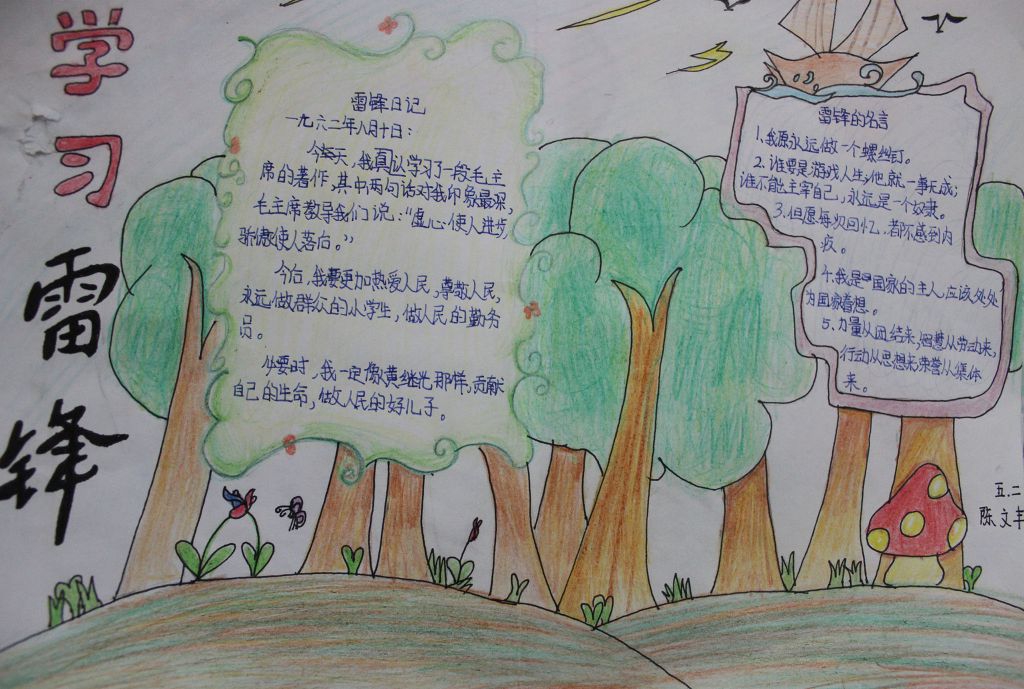 学习雷锋
雷锋日记
一九六二年八月十日：
今天，我真认学习了一段毛主
席的著作，其中两句话对我印象最深，
毛主席教导我们说：“虚心使人进步，
骄傲使人落后。”
今后，我要更加热爱人民，尊敬人民，
永远做群众的小学生，做人民的勤务
员。
必要时，我一定像黄继光那样，贡献
自己的生命，做人民的好儿子。
雷锋的名言
1、我愿永远做一个螺丝钉。
2、谁要是游戏人生，他就一事无成；
谁不能主宰自己，永远是一个奴隶。
3、但愿每次回忆，都不感到内
疚。
4、我是国家的主人，应该处处
为国家着想。
5、力量从团结来，智慧从劳动来，
行动从思想来荣誉从集体
来。
五.二
陈文丰